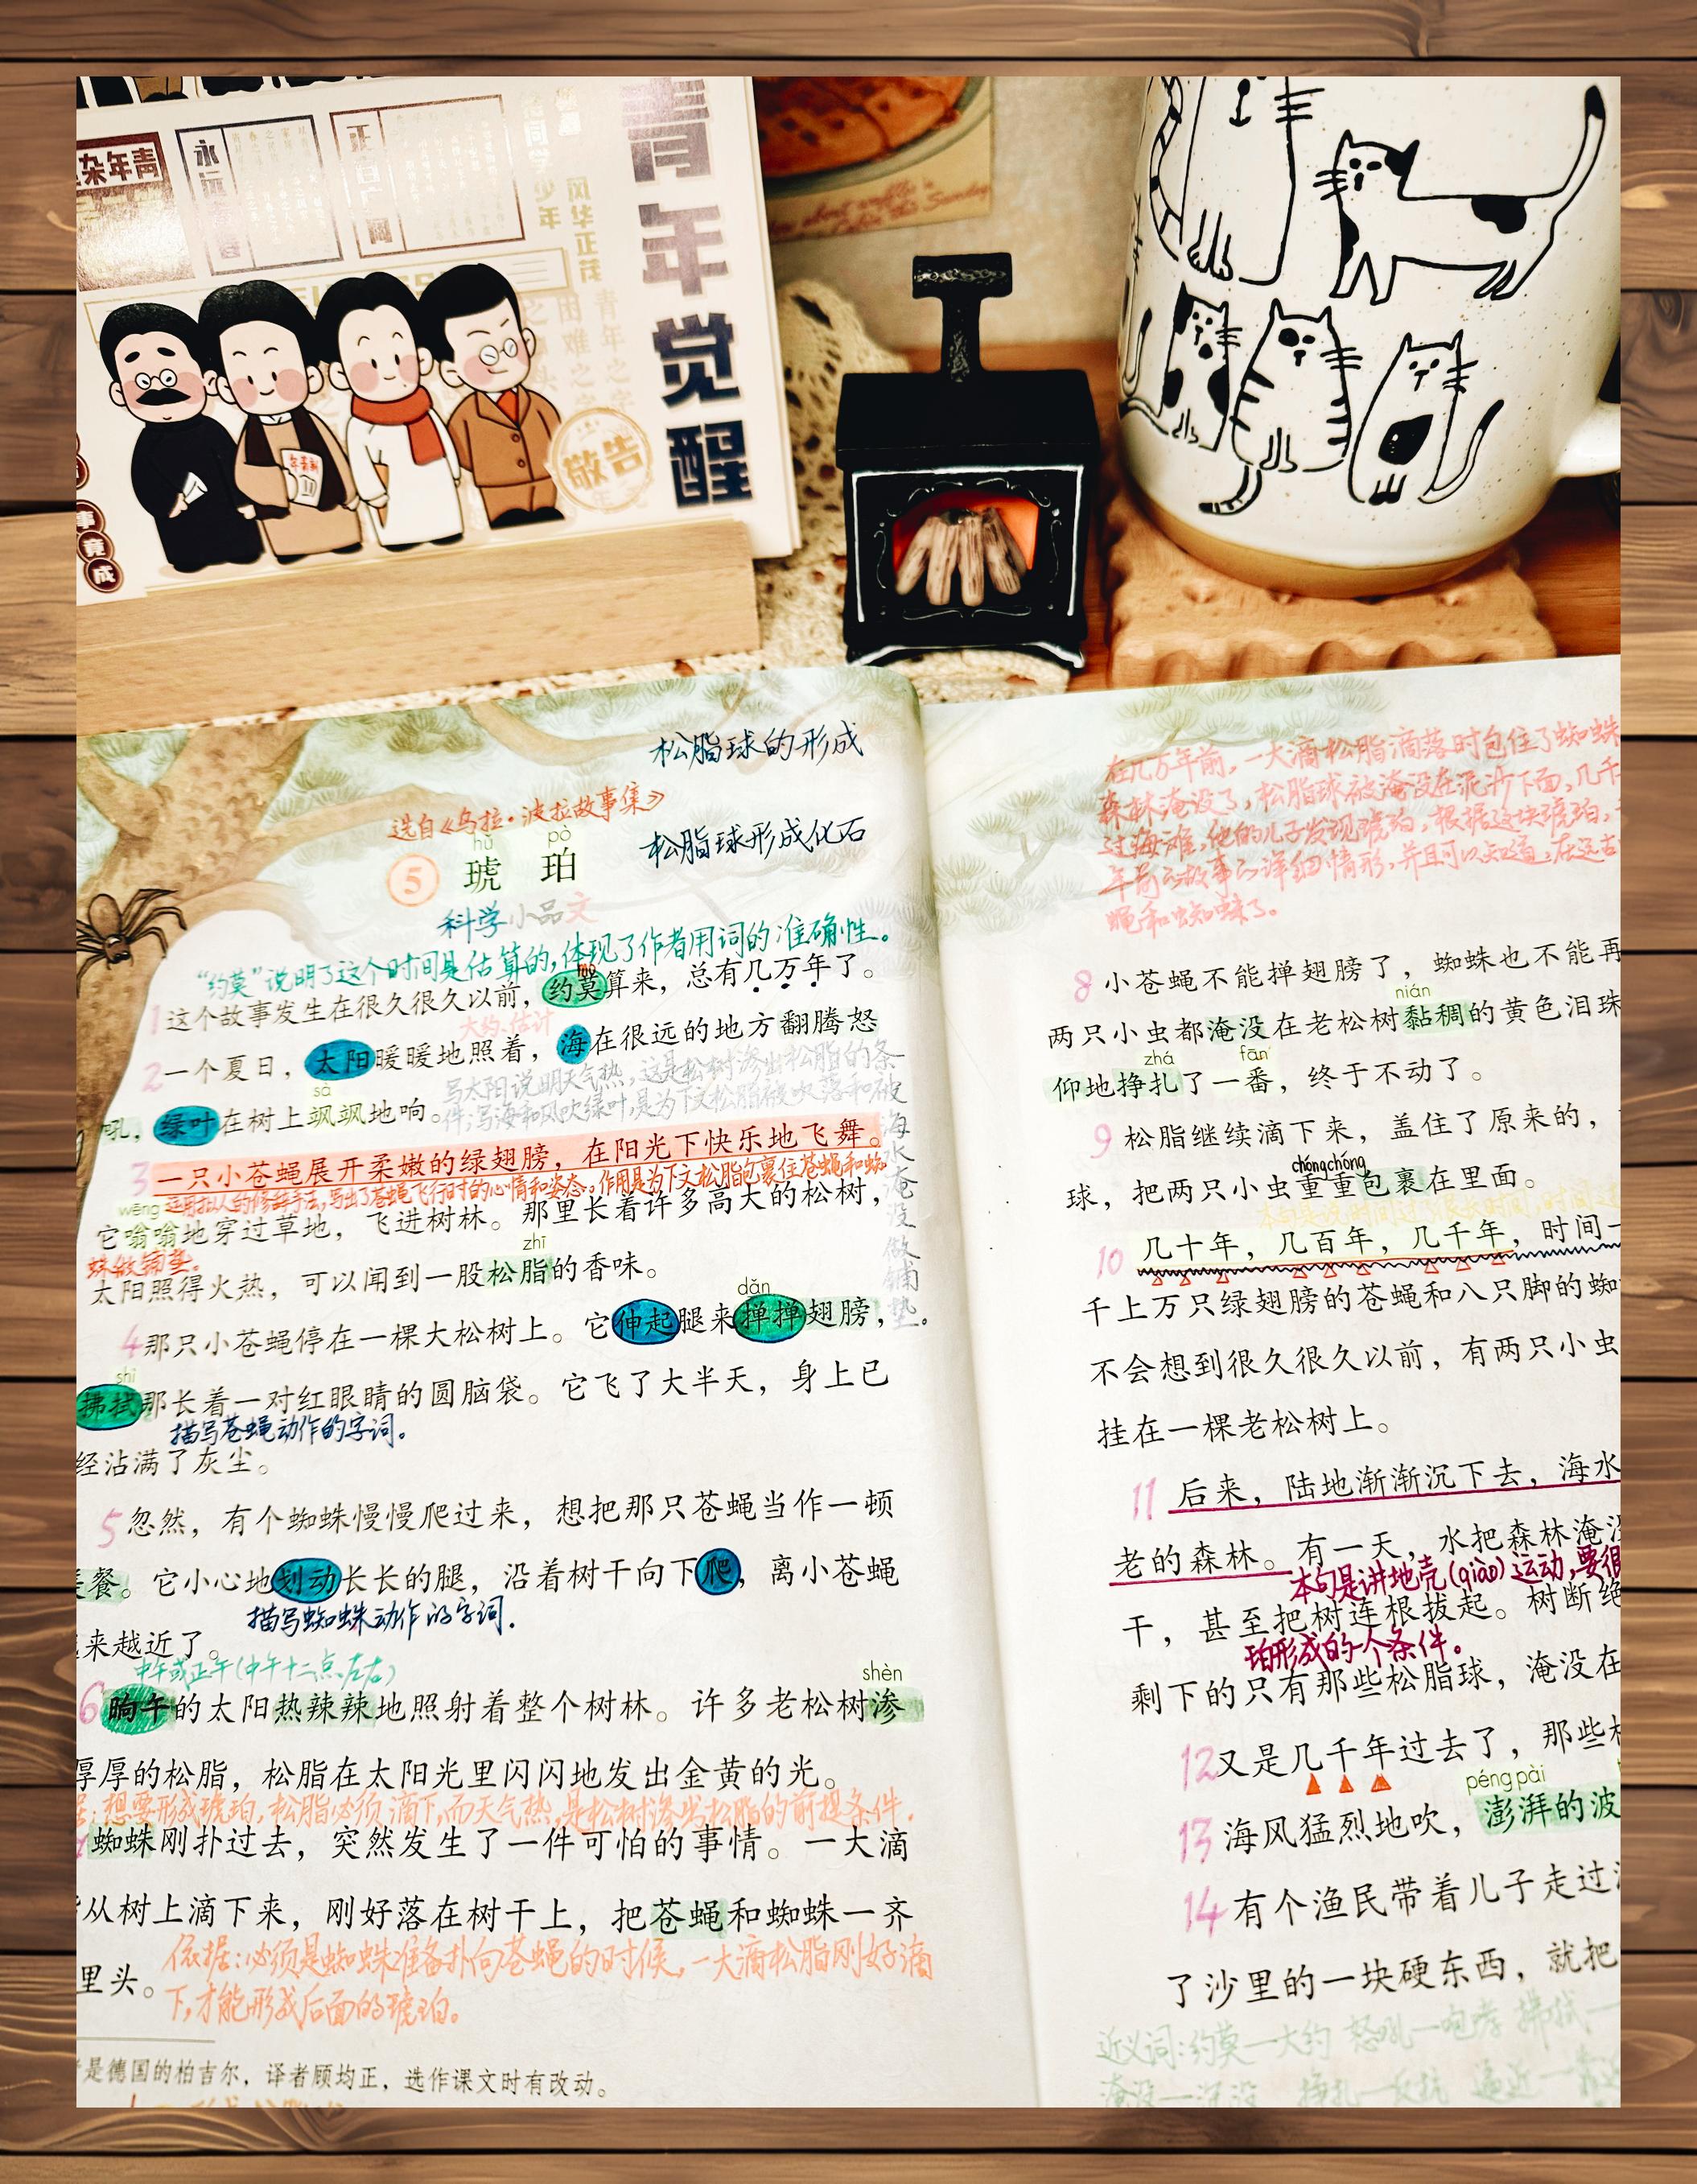 青年杂
永远
青年觉醒
风华正茂
敬告
事竟成
松脂球的形成
选自《乌拉·波拉故事集》
松脂球形成化石
hǔ pò
5 琥珀
科学小品文
“约莫”说明了这个时间是估算的,体现了作者用词的准确性。
mò
1 这个故事发生在很久很久以前，约莫算来，总有几万年了。
大约、估计
2 一个夏日，太阳暖暖地照着，海在很远的地方翻腾怒
写太阳说明天气热,这是松树渗出松脂的条
sà
吼，绿叶在树上飒飒地响。
件;写海和风吹绿叶,是为下文松脂被吹落和被
海水淹没做铺垫。
3 一只小苍蝇展开柔嫩的绿翅膀，在阳光下快乐地飞舞。
运用拟人的修辞手法,写出了苍蝇飞行时的心情和姿态。作用是为下文松脂包裹住苍蝇和蜘
wēng
它嗡嗡地穿过草地，飞进树林。那里长着许多高大的松树，
蛛做铺垫。
zhī
太阳照得火热，可以闻到一股松脂的香味。
dǎn
4 那只小苍蝇停在一棵大松树上。它伸起腿来掸掸翅膀，
shì
拂拭那长着一对红眼睛的圆脑袋。它飞了大半天，身上已
描写苍蝇动作的字词。
经沾满了灰尘。
5 忽然，有个蜘蛛慢慢爬过来，想把那只苍蝇当作一顿
餐。它小心地划动长长的腿，沿着树干向下爬，离小苍蝇
描写蜘蛛动作的字词.
来越近了。
中午或正午(中午十二点左右)
shèn
6 晌午的太阳热辣辣地照射着整个树林。许多老松树渗
厚厚的松脂，松脂在太阳光里闪闪地发出金黄的光。
:想要形成琥珀,松脂必须滴下,而天气热,是松树渗出松脂的前提条件.
蜘蛛刚扑过去，突然发生了一件可怕的事情。一大滴
从树上滴下来，刚好落在树干上，把苍蝇和蜘蛛一齐
依据:必须是蜘蛛准备扑向苍蝇的时候,一大滴松脂刚好滴
里头。
下,才能形成后面的琥珀。
是德国的柏吉尔，译者顾均正，选作课文时有改动。
在几万年前,一大滴松脂滴落时包住了蜘蛛
森林淹没了,松脂球被淹没在泥沙下面,几千
过海滩,他的儿子发现琥珀,根据这块琥珀,
年前的故事的详细情形,并且可以知道,在远古
蝇和蜘蛛了。
8 小苍蝇不能掸翅膀了，蜘蛛也不能再
nián
两只小虫都淹没在老松树黏稠的黄色泪珠
zhá fān
仰地挣扎了一番，终于不动了。
9 松脂继续滴下来，盖住了原来的，
chóngchóng
球，把两只小虫重重包裹在里面。
10 几十年，几百年，几千年，时间一
千上万只绿翅膀的苍蝇和八只脚的蜘
不会想到很久很久以前，有两只小虫
挂在一棵老松树上。
11 后来，陆地渐渐沉下去，海水
老的森林。有一天，水把森林淹没
本句是讲地壳(qiào)运动,要很
干，甚至把树连根拔起。树断绝
珀形成的一个条件。
剩下的只有那些松脂球，淹没在
12 又是几千年过去了，那些
péng pài
13 海风猛烈地吹，澎湃的波
14 有个渔民带着儿子走过
了沙里的一块硬东西，就把
近义词:约莫—大约 怒吼—咆哮 拂拭—
淹没—沉没 挣扎—反抗 逼近—靠近